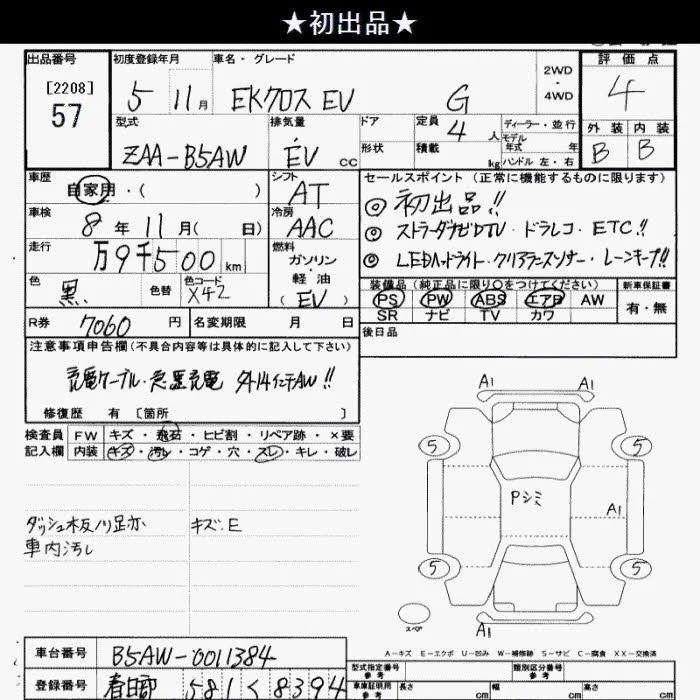 ★初出品★
出品番号 初度登録年月 車名・グレード 2WD・4WD 評価点
[2208]
57
5 11月 EKクロス EV G 4
型式 排気量 ドア 定員 ディーラー・並行
ZAA-B5AW EV CC 形状 積載 4人 モデル年式 年
kg ハンドル 左・右
外装 内装
B B
車歴 シフト セールスポイント (正常に機能するものに限ります)
自家用・( ) AT
◎ 初出品!!
車検 冷房
8年11月( 日) AAC
◎ ストラーダナビDTV・ドラレコ・ETC!!
走行 燃料
万9千500km ガソリン・軽油(EV)
◎ LEDヘッドライト・クリアランスソナー・レーンキープ!!
色 色替 色コード
黒 X42
装備品(純正品に限り○をつけてください) 新車保証書
PS PW ABS エアB AW 有・無
SR ナビ TV カワ
R券 7060円 名変期限 月 日
後日品
注意事項申告欄(不具合内容等は具体的に記入して下さい)
充電ケーブル・急速充電 外14インチAW!!
修復歴 有 [箇所 ]
検査員 FW キズ・飛石・ヒビ割・リペア跡・×要
記入欄 内装 キズ・汚れ・コゲ・穴・スレ・キレ・破レ
ダッシュ板ノリ足亦 キズ:E
車内汚し
A1 A1
5 5
Pシミ
A1
5 5
スペア
A1
A-キズ E-エクボ U-凹み W-補修跡 S-サビ C-腐食 XX-交換済
車台番号 B5AW-0011384
型式指定番号 参考 類別区分番号 参考
登録番号 春日部 581 く 8394
車庫証明用 参考 長さ cm 幅 cm 高さ cm